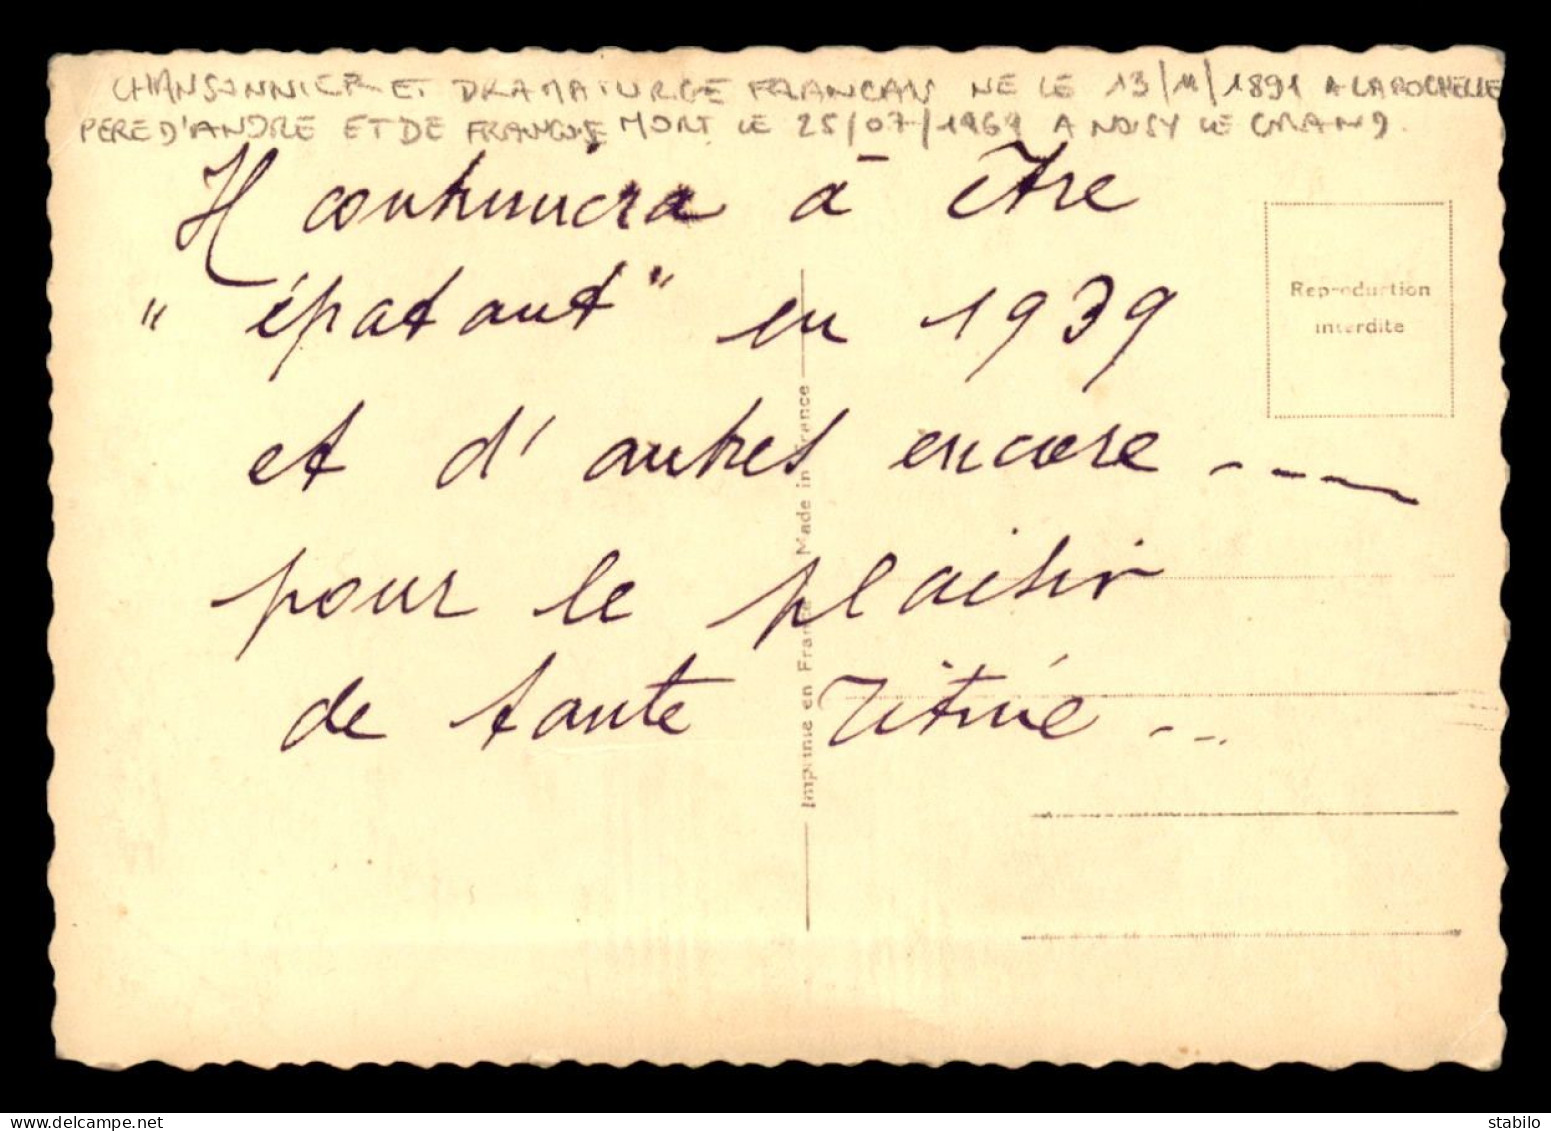 CHANSONNIER ET DRAMATURGE FRANCAIS NE LE 13/11/1891 A LA ROCHELLE
PERE D'ANDRE ET DE FRANCOIS MORT LE 25/07/1969 A NOISY LE GRAND.
Il continuera à être
" épatant" en 1939
et d'autres encore ----
pour le plaisir
de tante --
Reproduction
interdite
Imprimé en France Made in France
www.delcampe.net
stabilo_